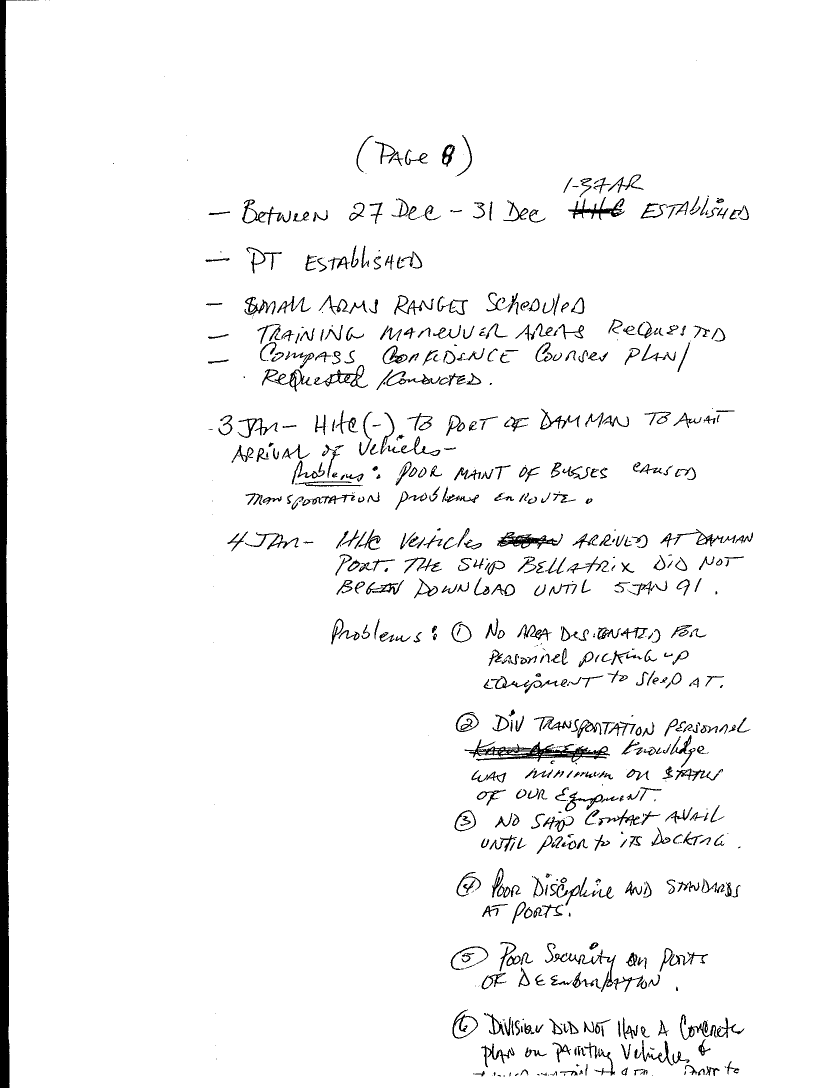 (PAGE 8)
1-37AR
— Between 27 Dec — 31 Dec HHC ESTAbliSHED
— PT ESTAbliSHED
— SMALL ARMS RANGES ScheDulED
— TRAINING MANEUVER AREAS REQUESTED
— Compass CONFIDENCE Courses PLAN/
Requested /Conducted.
-3 JAn — HHC(-) to PORT OF DAMMAN TO AWAIT
ARRIVAL of Vehicles—
Problems: POOR MAINT OF BUSSES CAUSED
TRANSPORTATION problems ENROUTE.
4 JAn — HHC VEHicles BEGAN ARRIVED AT DAMMAN
PORT. THE SHIP BELLATRIX DID NOT
BEGIN DOWNLOAD UNTIL 5 JAN 91.
Problems: ① No AREA DESIGNATED FOR
PERSONNEL picking up
EQuipmenT to Sleep AT.
② Div TRANSPORTATION PERSONNEL
Knew of Equip Knowledge
WAS minimum on STATUS
OF OUR EquipmenT.
③ NO SHIP ContACT AVAIL
UNTIL PRIOR to ITS DOCKING.
④ POOR DISCipline AND STANDARDS
AT PORTS.
⑤ POOR Security on PORTS
OF DEEmbarkATION.
⑥ DIVISION DID NOT HAVE A ConCRete
PLAN on PAinting Vehicles &
PRIOR to